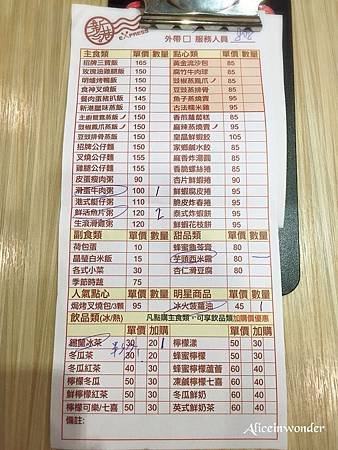 新港 EXPRESS
外帶 □ 服務人員
主食類 單價 數量 點心類 單價 數量
招牌三寶飯 165 黃金流沙包 85
玫瑰油雞腿飯 150 腐竹牛肉球 85
明爐烤鴨飯 150 豉椒蒸鳳爪 85
食神叉燒飯 150 豆豉蒸排骨 85
餐肉蛋豬扒飯 145 魚子蒸燒賣 95
新港臘味蒸飯 150 古法糯米雞 95
150 香煎蘿蔔糕 85
豉椒鳳爪蒸飯 150 麻辣蒸燒賣 95
豆豉排骨蒸飯 150 皇晶鮮蝦餃 105
招牌公仔麵 150 家鄉鹹水餃 85
叉燒公仔麵 150 麻香炸湯圓 85
雞腿公仔麵 150 香脆螺絲捲 85
皮蛋瘦肉粥 90 杏片鮮蝦捲 85
滑蛋牛肉粥 100 1 鮮蝦腐皮捲 95
港式艇仔粥 110 脆皮炸春捲 95
鮮活魚片粥 120 2 泰式炸蝦餅 95
生滾滑雞粥 120 鮮蝦花枝餅 95
副食類 單價 數量 甜品類 單價 數量
荷包蛋 10 蜂蜜龜苓膏 80
晶瑩白米飯 15 芋頭西米露 80
各式小菜 30 杏仁滑豆腐 80
季節時蔬 75
人氣點心 單價 數量 明星商品 單價 數量
焗烤叉燒包/3顆 95 冰火菠蘿油 45 1
飲品類(冰/熱) 凡點購主食類，可享飲品類加購價優惠
單價 加購 單價 加購
錫蘭冰茶 30 20 1 檸檬漾 50 30
冬瓜茶 30 20 蜂蜜檸檬 50 30
冬瓜紅茶 40 30 蜂蜜檸檬蘆薈 60 40
檸檬冬瓜 50 30 凍鹹檸檬七喜 60 40
鮮檸檬紅茶 50 30 冬瓜鮮奶 60 40
檸檬可樂/七喜 50 30 英式鮮奶茶 60 40
備註:
Aliceinwonder